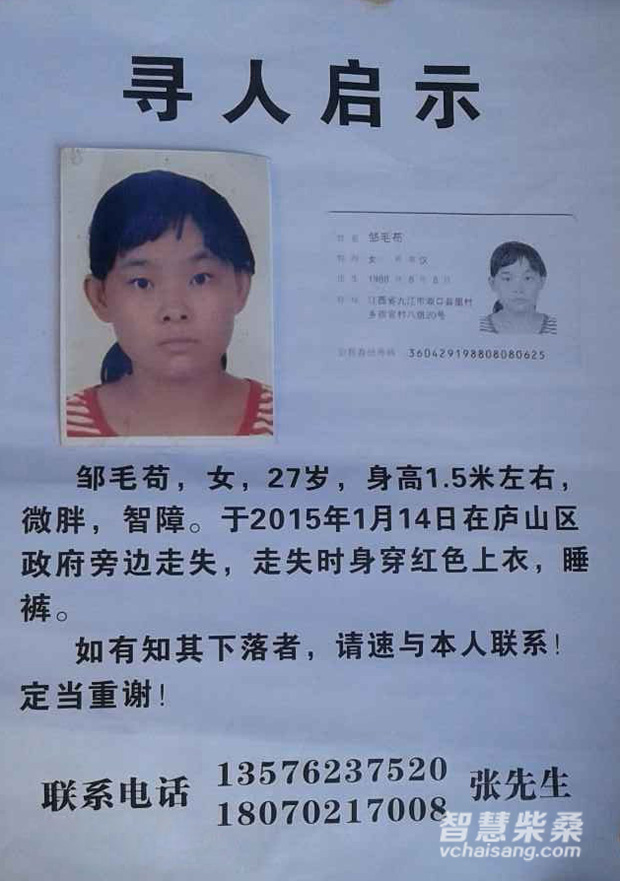 寻人启示
姓名 邹毛苟
性别 女 民族 汉
出生 1988 年 8 月 8 日
住址 江西省九江市
八组20号
公民身份号码 360429198808080625
邹毛苟，女，27岁，身高1.5米左右，
微胖，智障。于2015年1月14日在庐山区
政府旁边走失，走失时身穿红色上衣，睡
裤。
如有知其下落者，请速与本人联系！
定当重谢！
联系电话 13576237520 张先生
18070217008
智慧柴桑
vchaisang.com